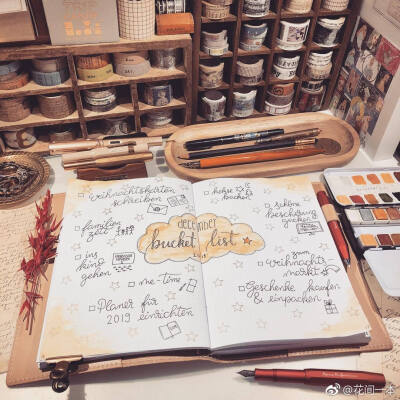 weihnachtskarten
schreiben
familien
zeit
ins
kino
gehen
me-time
Planer für
2019 einrichten
december
bucket list
kekse
backen
schöne
bescherung
gucken
zum
weihnachts-
markt
Geschenke kaufen
& einpacken
@花间一本